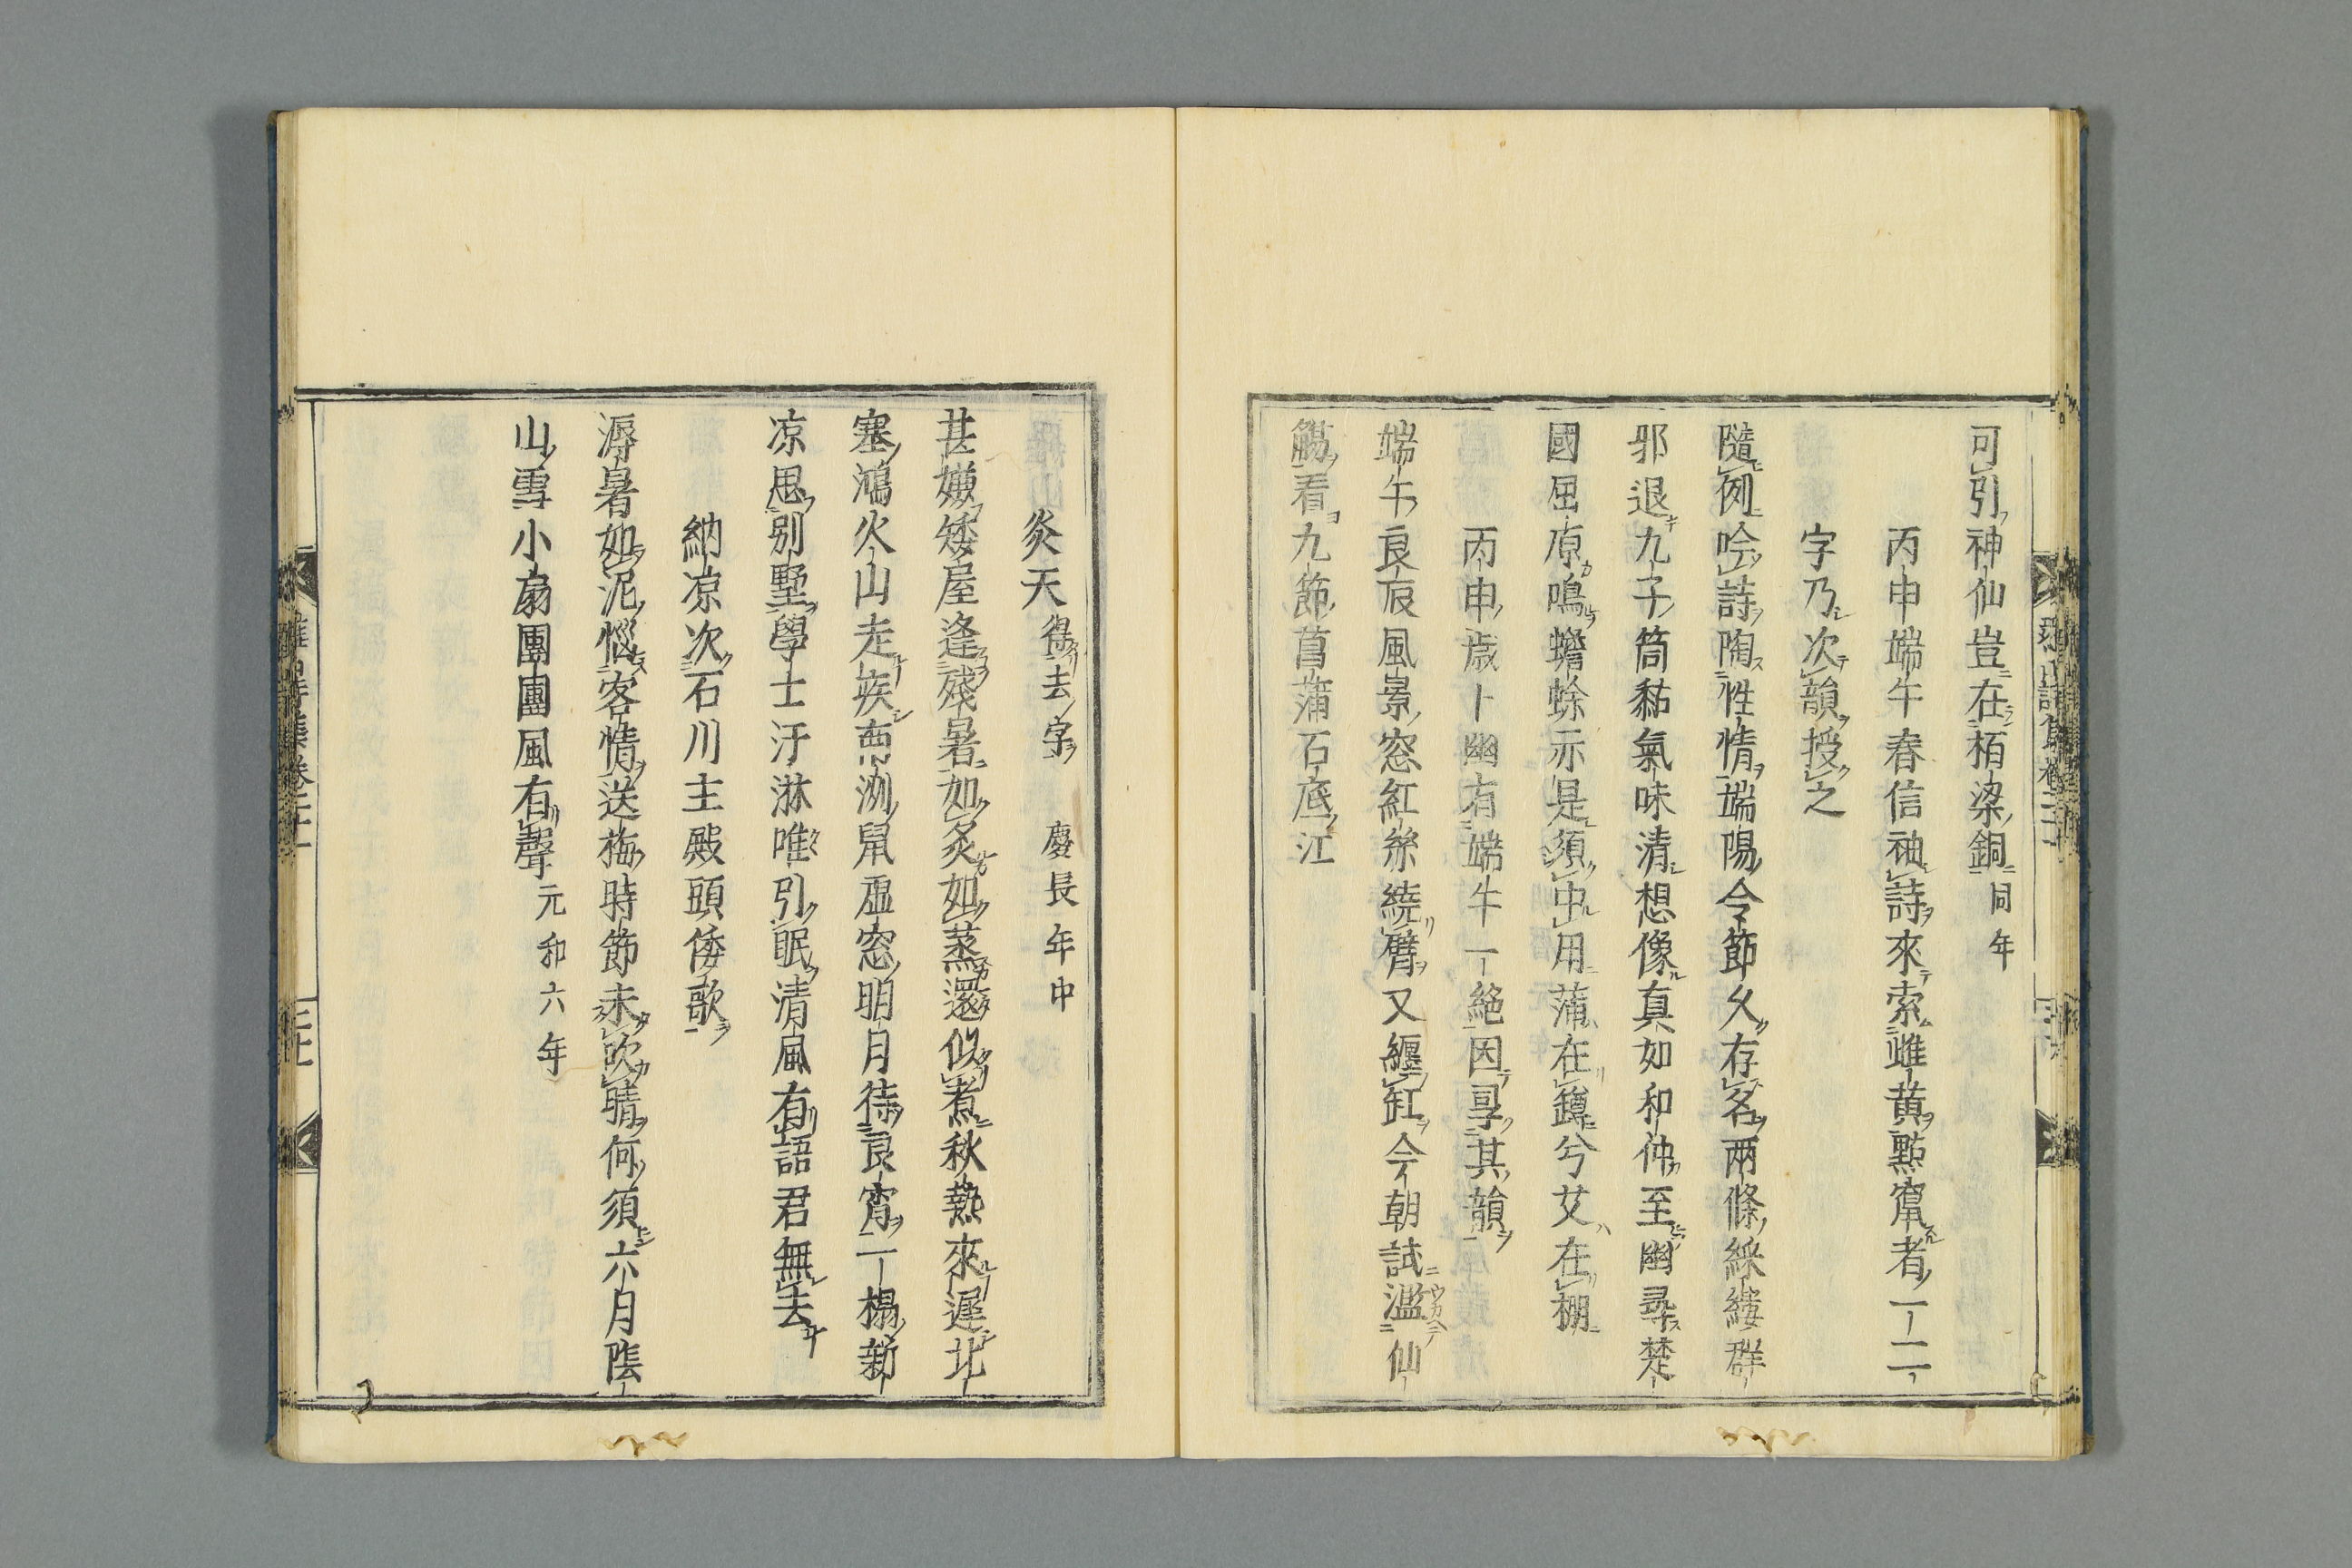 可引神仙豈在栢梁銅 同年
丙申端午春信袖詩來索雌黄點竄者一二
字乃次韻授之
隨例吟詩陶性情端陽令節久存名兩條綵縷群
邪退九子筒黏氣味清想像真如和仲至幽尋楚
國屈原鳴蟾蜍示是須虫用蒲在罇兮艾在棚
丙申歳卜幽有端午一絶因㝷其韻
端午良辰風景窓紅絲繞臂又纏缸今朝試濫仙
觴看九節菖蒲石底江
炎天 得去字 慶長年中
甚嫌矮屋逢殘暑如炙如蒸還似煮秋熱來遲北
塞鴻火山走疾西洌鼠虛窓明月待良宵一榻新
凉思別墅學士汗淋唯引眠清風有語君無去
納凉次石川主殿頭倭歌
溽暑如泥惱客情送梅時節未吹晴何須六月陰
山雪小扇團團風有聲 元和六年